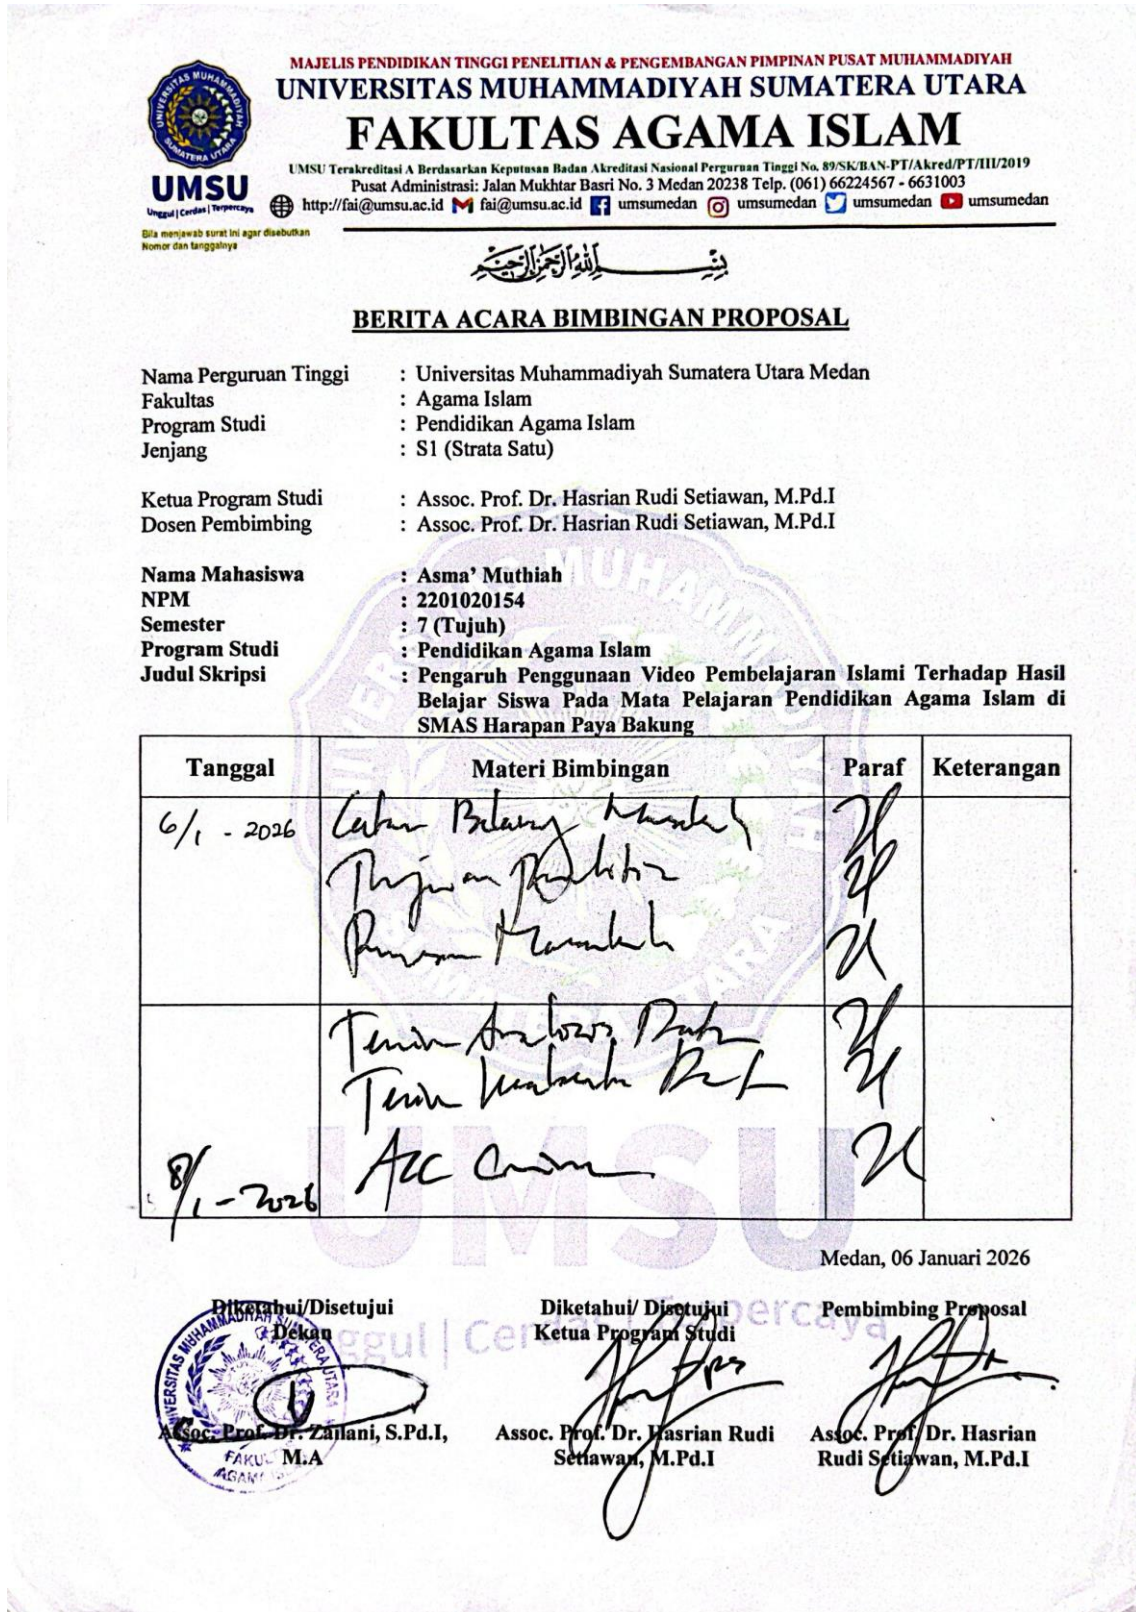 MAJELIS PENDIDIKAN TINGGI PENELITIAN & PENGEMBANGAN PIMPINAN PUSAT MUHAMMADIYAH
UNIVERSITAS MUHAMMADIYAH SUMATERA UTARA
FAKULTAS AGAMA ISLAM
UMSU Terakreditasi A Berdasarkan Keputusan Badan Akreditasi Nasional Perguruan Tinggi No. 89/SK/BAN-PT/Akred/PT/III/2019
Pusat Administrasi: Jalan Mukhtar Basri No. 3 Medan 20238 Telp. (061) 66224567 - 6631003
http://fai@umsu.ac.id fai@umsu.ac.id umsumedan umsumedan umsumedan umsumedan
UNIVERSITAS MUHAMMADIYAH SUMATERA UTARA
UMSU
Unggul | Cerdas | Terpercaya
Bila menjawab surat ini agar disebutkan
Nomor dan tanggalnya
بِسْمِ اللَّهِ الرَّحْمَٰنِ الرَّحِيمِ
BERITA ACARA BIMBINGAN PROPOSAL
Nama Perguruan Tinggi : Universitas Muhammadiyah Sumatera Utara Medan
Fakultas : Agama Islam
Program Studi : Pendidikan Agama Islam
Jenjang : S1 (Strata Satu)
Ketua Program Studi : Assoc. Prof. Dr. Hasrian Rudi Setiawan, M.Pd.I
Dosen Pembimbing : Assoc. Prof. Dr. Hasrian Rudi Setiawan, M.Pd.I
Nama Mahasiswa : Asma’ Muthiah
NPM : 2201020154
Semester : 7 (Tujuh)
Program Studi : Pendidikan Agama Islam
Judul Skripsi : Pengaruh Penggunaan Video Pembelajaran Islami Terhadap Hasil
Belajar Siswa Pada Mata Pelajaran Pendidikan Agama Islam di
SMAS Harapan Paya Bakung
Tanggal Materi Bimbingan Paraf Keterangan
6/1 - 2026 Latar Belakang Masalah
Tujuan Penelitian
Rumusan Masalah
Teknik Data
Teknik
8/1 - 2026 Acc
Medan, 06 Januari 2026
Diketahui/Disetujui Diketahui/ Disetujui Pembimbing Proposal
Dekan Ketua Program Studi
Assoc. Prof. Dr. Zailani, S.Pd.I, Assoc. Prof. Dr. Hasrian Rudi Assoc. Prof. Dr. Hasrian
M.A Setiawan, M.Pd.I Rudi Setiawan, M.Pd.I
UNIVERSITAS MUHAMMADIYAH SUMATERA UTARA
FAKULTAS
AGAMA ISLAM
UNIVERSITAS MUHAMMADIYAH SUMATERA UTARA
UMSU
Unggul | Cerdas | Terpercaya